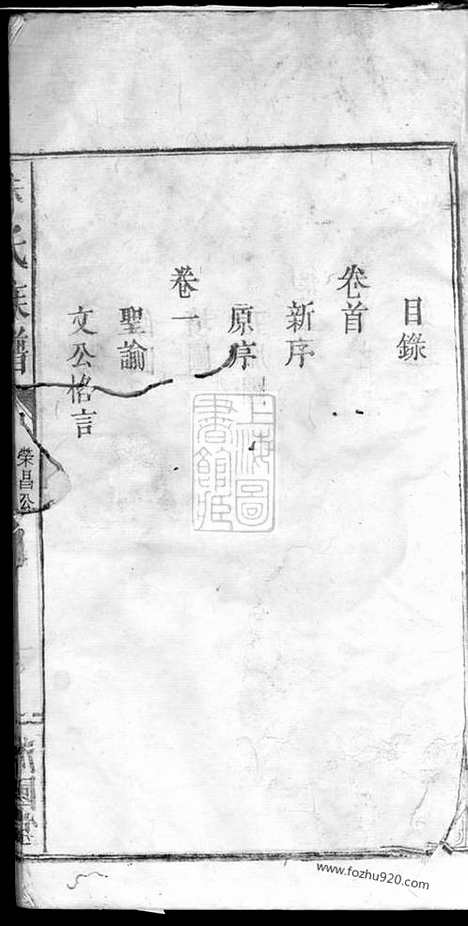 目錄
卷首
新序
原序
卷一
聖諭
文公格言
氏族譜
榮昌公
上海圖書館藏
www.fozhu920.com